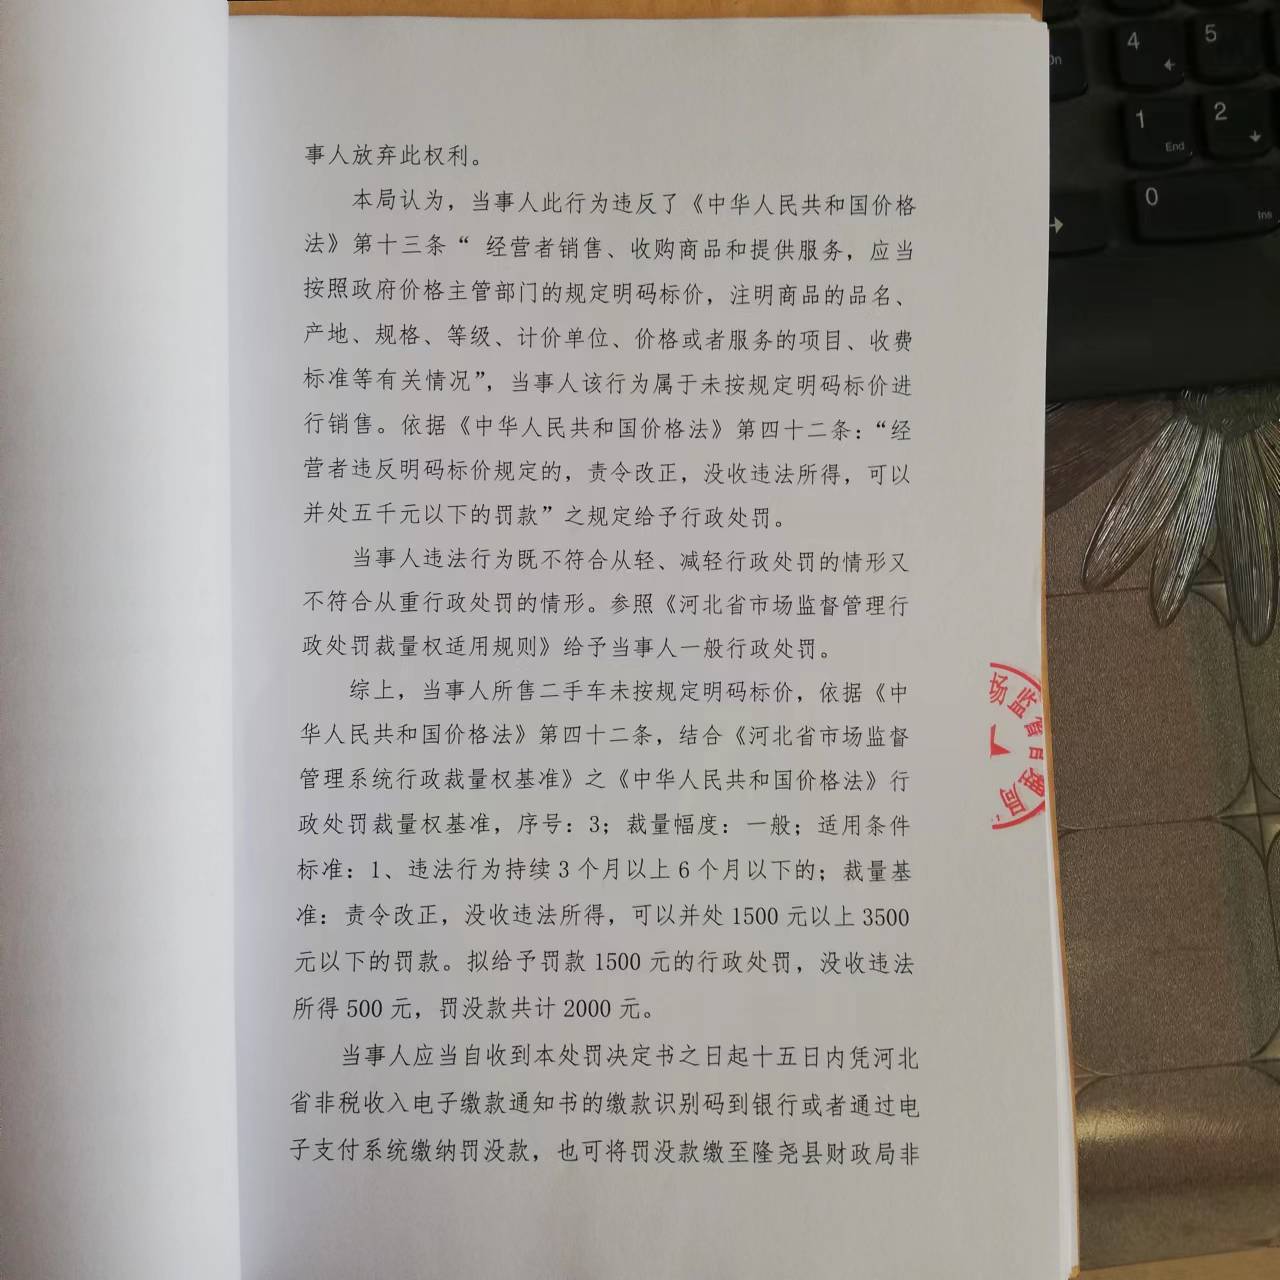 事人放弃此权利。
本局认为，当事人此行为违反了《中华人民共和国价格
法》第十三条“ 经营者销售、收购商品和提供服务，应当
按照政府价格主管部门的规定明码标价，注明商品的品名、
产地、规格、等级、计价单位、价格或者服务的项目、收费
标准等有关情况”，当事人该行为属于未按规定明码标价进
行销售。依据《中华人民共和国价格法》第四十二条：“经
营者违反明码标价规定的，责令改正，没收违法所得，可以
并处五千元以下的罚款”之规定给予行政处罚。
当事人违法行为既不符合从轻、减轻行政处罚的情形又
不符合从重行政处罚的情形。参照《河北省市场监督管理行
政处罚裁量权适用规则》给予当事人一般行政处罚。
综上，当事人所售二手车未按规定明码标价，依据《中
华人民共和国价格法》第四十二条，结合《河北省市场监督
管理系统行政裁量权基准》之《中华人民共和国价格法》行
政处罚裁量权基准，序号：3；裁量幅度：一般；适用条件
标准：1、违法行为持续 3 个月以上 6 个月以下的；裁量基
准：责令改正，没收违法所得，可以并处 1500 元以上 3500
元以下的罚款。拟给予罚款 1500 元的行政处罚，没收违法
所得 500 元，罚没款共计 2000 元。
当事人应当自收到本处罚决定书之日起十五日内凭河北
省非税收入电子缴款通知书的缴款识别码到银行或者通过电
子支付系统缴纳罚没款，也可将罚没款缴至隆尧县财政局非
场监督管理局
4
5
1
End
2
0
Ins